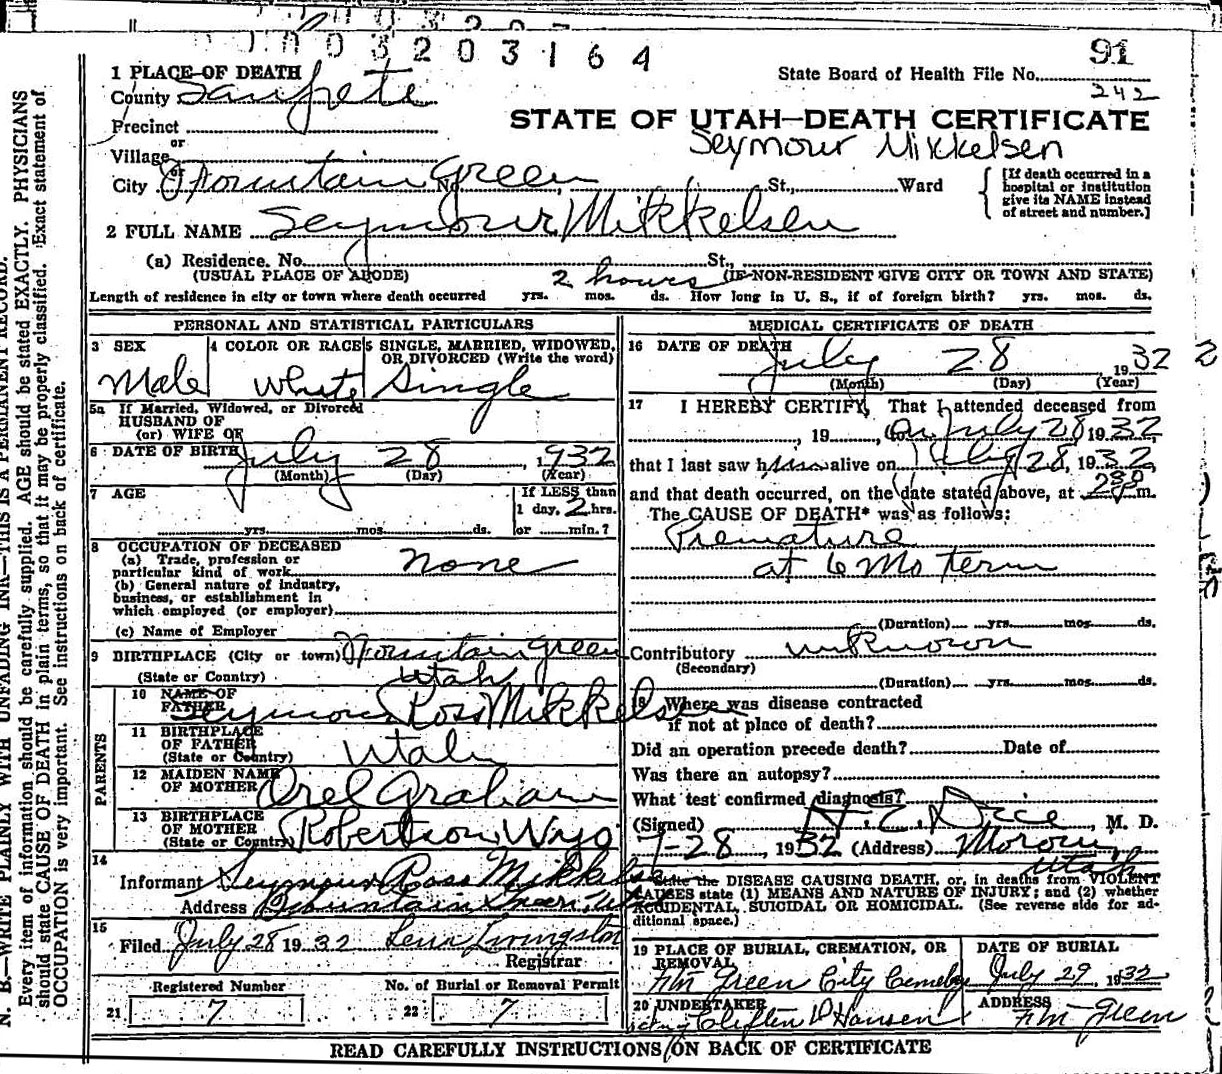 0003203164
91
242
1 PLACE OF DEATH
State Board of Health File No.
County Sanpete
STATE OF UTAH—DEATH CERTIFICATE
Precinct
or
Seymour Mikkelsen
Village
or
City Fountain Green No. St., Ward
[If death occurred in a hospital or institution give its NAME instead of street and number.]
2 FULL NAME Seymour Mikkelsen
(a) Residence. No. St.,
(USUAL PLACE OF ABODE) 2 hours (IF NON-RESIDENT GIVE CITY OR TOWN AND STATE)
Length of residence in city or town where death occurred yrs. mos. ds. How long in U. S., if of foreign birth? yrs. mos. ds.
PERSONAL AND STATISTICAL PARTICULARS
3 SEX
Male
4 COLOR OR RACE
White
5 SINGLE, MARRIED, WIDOWED, OR DIVORCED (Write the word)
Single
5a If Married, Widowed, or Divorced
HUSBAND OF
(or) WIFE OF
6 DATE OF BIRTH July 28, 1932
(Month) (Day) (Year)
7 AGE
yrs. mos. ds.
If LESS than
1 day, 2 hrs.
or min.?
8 OCCUPATION OF DECEASED
(a) Trade, profession or
particular kind of work none
(b) General nature of industry,
business, or establishment in
which employed (or employer)
(c) Name of Employer
9 BIRTHPLACE (City or town) Fountain Green
(State or Country) Utah
PARENTS
10 NAME OF
FATHER Seymour Ross Mikkelsen
11 BIRTHPLACE
OF FATHER
(State or Country) Utah
12 MAIDEN NAME
OF MOTHER Orel Graham
13 BIRTHPLACE
OF MOTHER
(State or Country) Robertson, Wyo
14
Informant Seymour Ross Mikkelsen
Address Fountain Green, Utah
15
Filed July 28 1932 Lena Livingston
Registrar
Registered Number
21 7
No. of Burial or Removal Permit
22 7
MEDICAL CERTIFICATE OF DEATH
16 DATE OF DEATH
July 28 1932
(Month) (Day) (Year)
17 I HEREBY CERTIFY, That I attended deceased from
, 19 , to on July 28 1932
that I last saw him alive on July 28, 1932,
and that death occurred, on the date stated above, at m.
The CAUSE OF DEATH* was as follows:
Premature
at 6 Mo term
(Duration) yrs. mos. ds.
Contributory unknown
(Secondary)
(Duration) yrs. mos. ds.
18 Where was disease contracted
if not at place of death?
Did an operation precede death? Date of
Was there an autopsy?
What test confirmed diagnosis?
(Signed) , M. D.
7-28, 1932 (Address) Moroni,
Utah
* State the DISEASE CAUSING DEATH, or, in deaths from VIOLENT
CAUSES state (1) MEANS AND NATURE OF INJURY; and (2) whether
ACCIDENTAL, SUICIDAL OR HOMICIDAL. (See reverse side for ad-
ditional space.)
19 PLACE OF BURIAL, CREMATION, OR
REMOVAL
Ftn Green City Cemetery
DATE OF BURIAL
July 29, 1932
20 UNDERTAKER
Hansen
ADDRESS
Ftn Green
READ CAREFULLY INSTRUCTIONS ON BACK OF CERTIFICATE
N. B.—WRITE PLAINLY WITH UNFADING INK—THIS IS A PERMANENT RECORD.
Every item of information should be carefully supplied. AGE should be stated EXACTLY. PHYSICIANS
should state CAUSE OF DEATH in plain terms, so that it may be properly classified. Exact statement of
OCCUPATION is very important. See instructions on back of certificate.